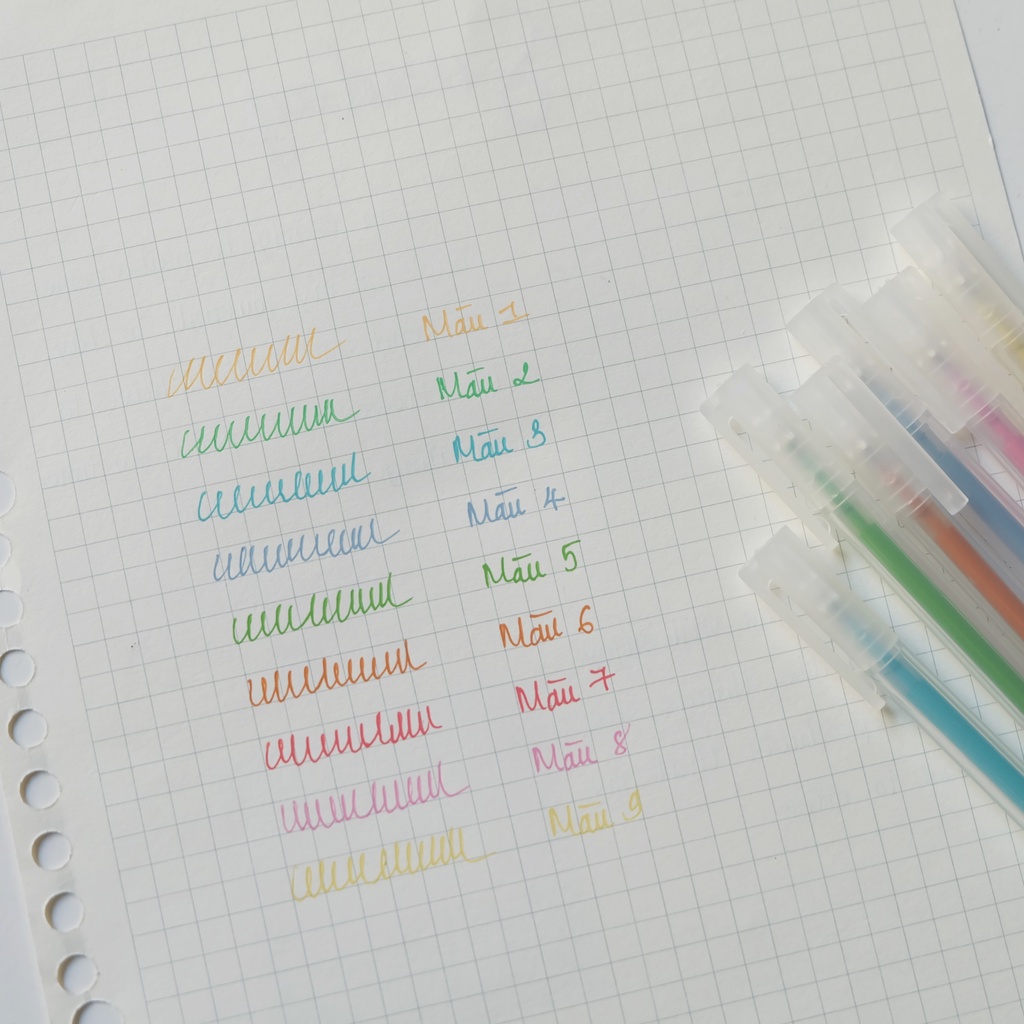 Mẫu 1
Mẫu 2
Mẫu 3
Mẫu 4
Mẫu 5
Mẫu 6
Mẫu 7
Mẫu 8
Mẫu 9